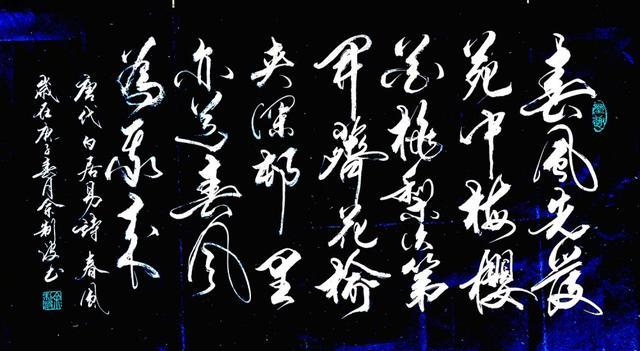 春風先發
苑中梅櫻
杏桃梨次第
開薺花榆
莢深邨里
亦道春风
為我來
唐代白居易詩春風
歲在庚子春月余